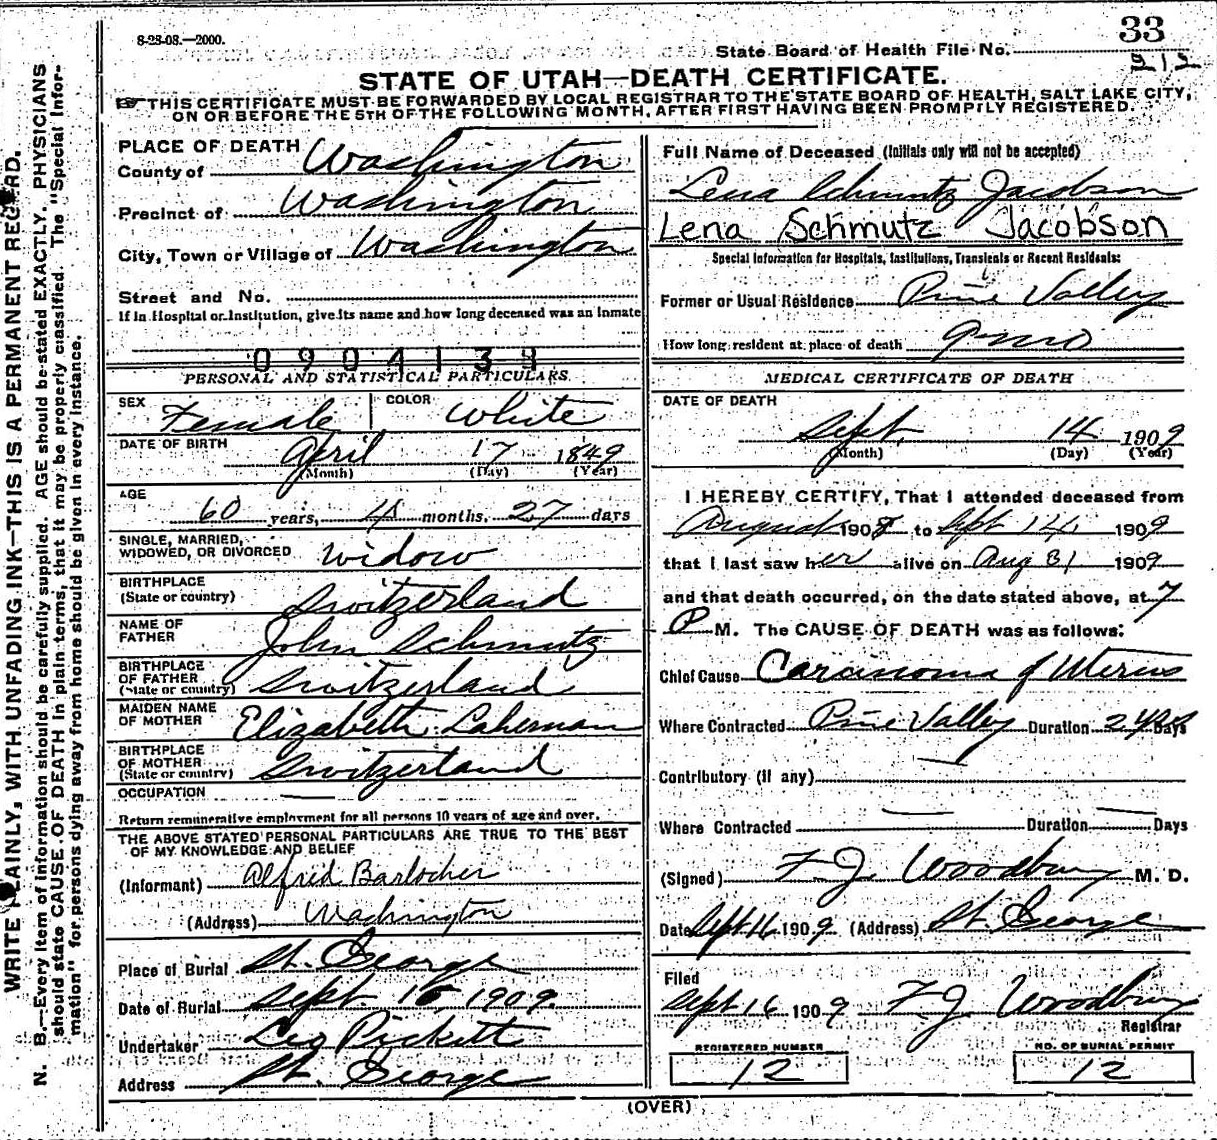 8-28-08.—2000.
33
State Board of Health File No.
STATE OF UTAH—DEATH CERTIFICATE.
THIS CERTIFICATE MUST BE FORWARDED BY LOCAL REGISTRAR TO THE STATE BOARD OF HEALTH, SALT LAKE CITY,
ON OR BEFORE THE 5TH OF THE FOLLOWING MONTH, AFTER FIRST HAVING BEEN PROMPTLY REGISTERED.
WRITE PLAINLY, WITH UNFADING INK—THIS IS A PERMANENT RECORD.
N. B.—Every item of information should be carefully supplied. AGE should be stated EXACTLY. PHYSICIANS
should state CAUSE OF DEATH in plain terms, that it may be properly classified. The "Special Infor-
mation" for persons dying away from home should be given in every instance.
PLACE OF DEATH
County of Washington
Precinct of Washington
City, Town or Village of Washington
Street and No.
If in Hospital or Institution, give its name and how long deceased was an inmate
0904133
PERSONAL AND STATISTICAL PARTICULARS
SEX Female COLOR White
DATE OF BIRTH April 17 1849
(Month) (Day) (Year)
AGE
60 years, 4 months, 27 days
SINGLE, MARRIED,
WIDOWED, OR DIVORCED Widow
BIRTHPLACE
(State or country) Switzerland
NAME OF
FATHER John Schmutz
BIRTHPLACE
OF FATHER
(State or country) Switzerland
MAIDEN NAME
OF MOTHER Elizabeth Laherman
BIRTHPLACE
OF MOTHER
(State or country) Switzerland
OCCUPATION
Return remunerative employment for all persons 10 years of age and over.
THE ABOVE STATED PERSONAL PARTICULARS ARE TRUE TO THE BEST
OF MY KNOWLEDGE AND BELIEF
(Informant) Alfred Barlocher
(Address) Washington
Place of Burial St. George
Date of Burial Sept 16 1909
Undertaker Leo Pickett
Address St. George
Full Name of Deceased (Initials only will not be accepted)
Lena Schmutz Jacobson
Lena Schmutz Jacobson
Special Information for Hospitals, Institutions, Transients or Recent Residents:
Former or Usual Residence Pine Valley
How long resident at place of death 9 mo
MEDICAL CERTIFICATE OF DEATH
DATE OF DEATH
Sept. 14 1909
(Month) (Day) (Year)
I HEREBY CERTIFY, That I attended deceased from
August 1908 to Sept 14, 1909
that I last saw her alive on Aug 31 1909
and that death occurred, on the date stated above, at 7
P M. The CAUSE OF DEATH was as follows:
Chief Cause Carcinoma of Uterus
Where Contracted Pine Valley Duration 2 yrs Days
Contributory (if any)
Where Contracted Duration Days
(Signed) F. J. Woodbury M. D.
Date Sept 16 1909 (Address) St. George
Filed
Sept 16 1909 F. J. Woodbury
Registrar
REGISTERED NUMBER
12
NO. OF BURIAL PERMIT
12
(OVER)